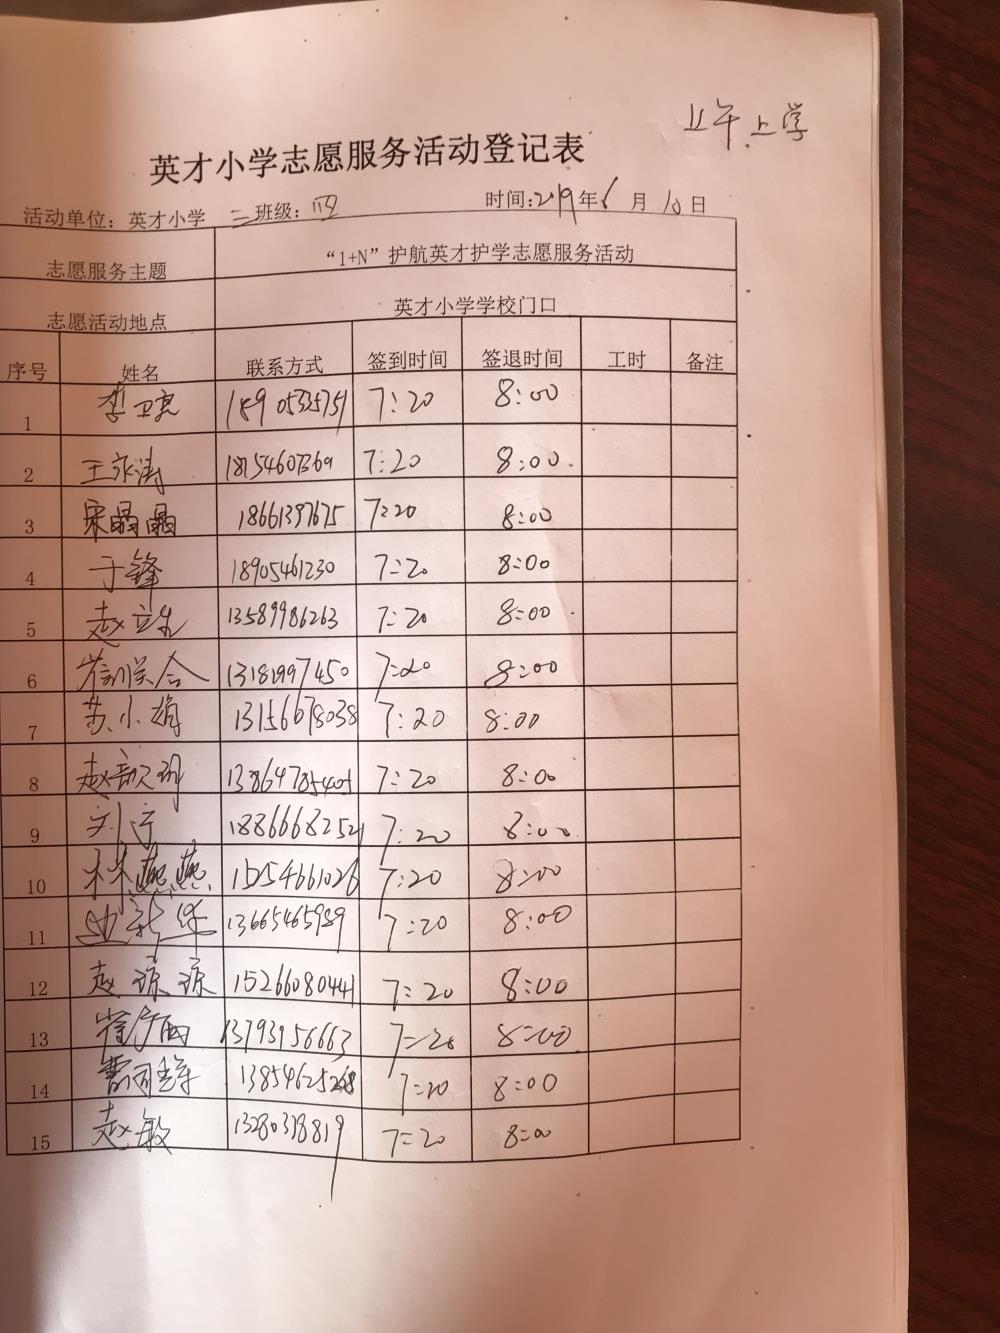 上午上学
英才小学志愿服务活动登记表
活动单位：英才小学 三班级：四 时间：2019年6月10日
志愿服务主题 “1+N”护航英才护学志愿服务活动
志愿活动地点 英才小学学校门口
序号 姓名 联系方式 签到时间 签退时间 工时 备注
1 李卫亮 18905335751 7:20 8:00
2 王永涛 18154607369 7:20 8:00
3 宋晶晶 18661397675 7:20 8:00
4 于锋 18905461230 7:20 8:00
5 赵立生 13589986263 7:20 8:00
6 13181997450 7:20 8:00
7 苏小娟 13156678038 7:20 8:00
8 赵 13864785405 7:20 8:00
9 刘宁 18866682521 7:20 8:00
10 林燕燕 15254661026 7:20 8:00
11 13665465989 7:20 8:00
12 赵琼琼 15266080441 7:20 8:00
13 13793956663 7:20 8:00
14 7:20 8:00
15 赵敏 7:20 8:00